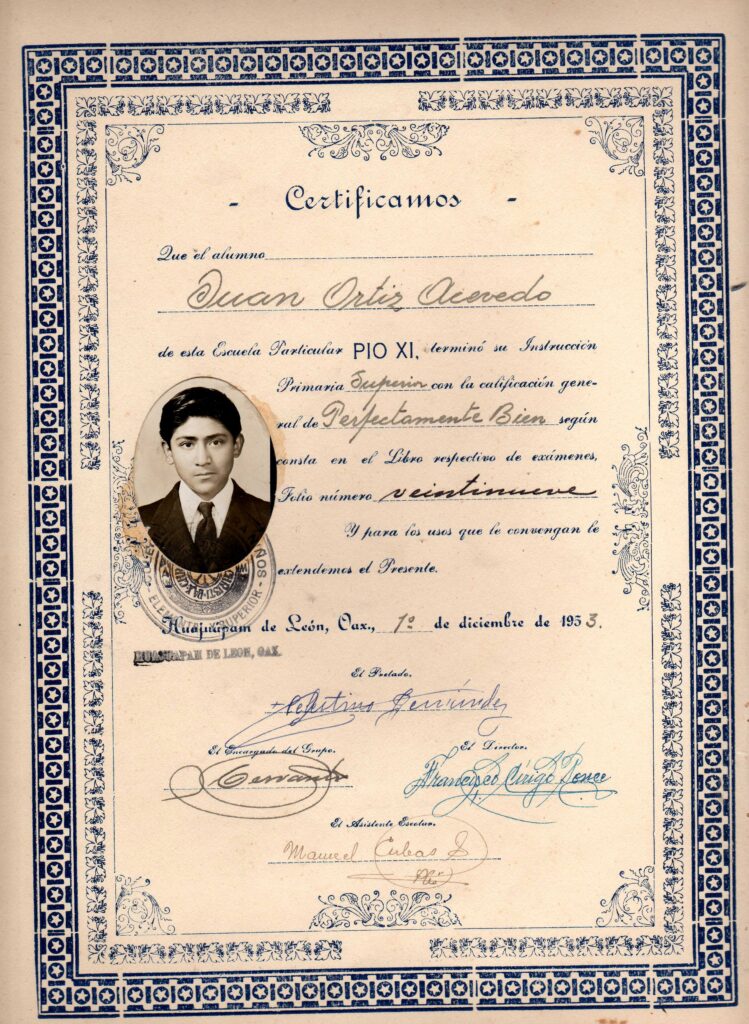 - Certificamos -
Que el alumno
Juan Ortiz Acevedo
de esta Escuela Particular PIO XI, terminó su Instrucción
Primaria Superior con la calificación gene-
ral de Perfectamente Bien según
consta en el Libro respectivo de exámenes,
Folio número veintinueve
Y para los usos que le convengan le
extendemos el Presente.
ELEMENTAL Y SUPERIOR
Huajuapam de León, Oax., 1º de diciembre de 1953.
HUAJUAPAM DE LEON, OAX.
El Prelado,
El Encargado del Grupo,
El Director,
Cervantes
Francisco Cirigo Ponce
El Asistente Escolar,
Manuel Cubas S